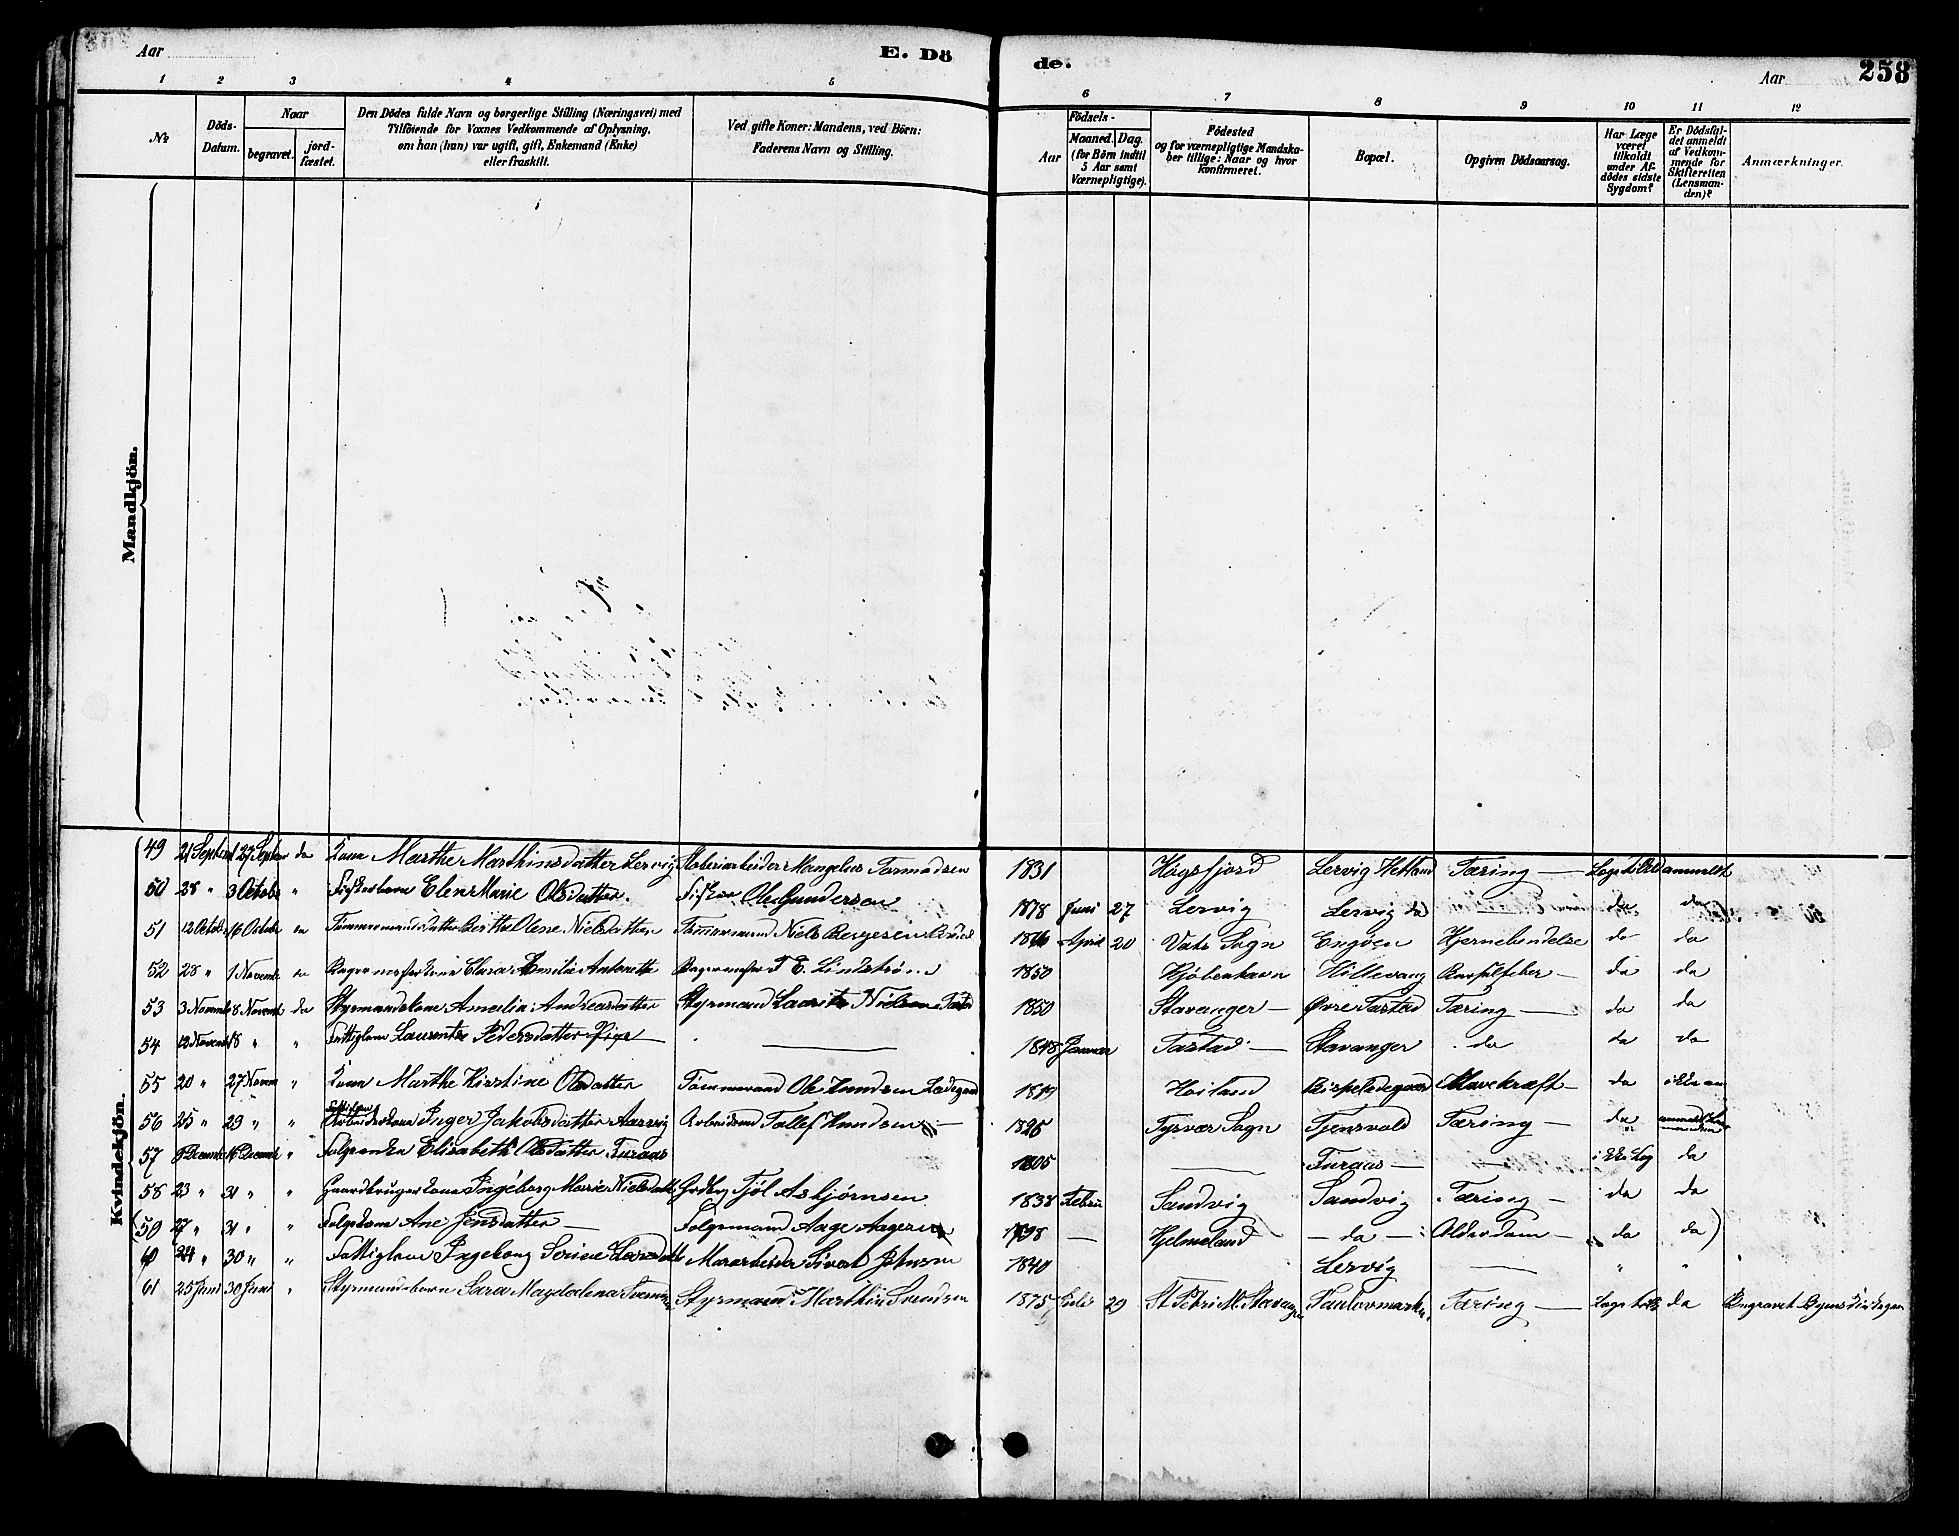 Aar
E. Dö
de.
Aar
258
1 2 3 4 5 6 7 8 9 10 11 12
№
Döds-Datum.
Naar
begravet.
jord-fæstet.
Den Dödes fulde Navn og borgerlige Stilling (Næringsvei) med
Tilföiende for Voxnes Vedkommende af Oplysning,
om han (hun) var ugift, gift, Enkemand (Enke)
eller fraskilt.
Ved gifte Koner: Mandens, ved Börn:
Faderens Navn og Stilling.
Födsels-
Aar
Maaned. Dag.
(for Börn indtil
5 Aar samt
Værnepligtige).
Födested
og for værnepligtige Mandska-
ber tillige: Naar og hvor
konfirmeret.
Bopæl.
Opgiven Dödsaarsag.
Har Læge
været
tilkaldt
under Af-
dödes sidste
Sygdom?
Er Dödsfal-
det anmeldt
af Vedkom-
mende for
Skifteretten
(Lensman-
den)?
Anmærkninger.
Mandkjön.
Kvindekjön.
49 21 Septem 27 Septem da Kone Marthe Marthinsdatter Lervig Mangelus Tormodsen 1831 Høgsfjord Lervig Hetland Tæring — anmeldt
50 28 " 3 Octob " Fiskerbarn Elen Marie Olsdatter. Fisker Ole Gundersen 1878 Juni 27 Lervig Lervig da da
51 12 Octob 16 Octob Tømmermandsdatter Berthe Olene Nielsdatter Tømmermand Niels Bergesen 1876 April 20 Vats Sogn Engøen Hjernebendelse da da
52 28 " 1 Novemb Clara Emilie Antonette T. E. Lindstrøm 1850 Kjøbenhavn Hillevaag Barselfeber — da da
53 3 Novemb 8 Novemb da Styrmandskone Amalia Andreasdatter Styrmand Laurits Nielsen 1850 Stavanger — Øvre Tastad Tæring — da da
54 12 Novemb 18 " " Fattiglem Laurentse Pedersdatter Pige — — 1848 Januar Tastad — Stavanger da da da
55 20 " 27 Novem " Kone Marthe Kirstine Olsdatter Tømmermand Ole Knudsen Ladegaard 1819 Høiland Bispeladegaard Mavekræft — da
56 25 " 29 " " Arbeiderkone Inger Jakobsdatter Aarvig Arbeidsm Tollef Knudsen — 1825 Tysvær Sogn Tjensvold Tæring — da
57 Decemb 16 Decemb " Elisabeth Olsdatter Furaas 1805 — Furaas — — da
58 23 " 31 " " Gaardbrugerkone Ingeborg Marie Nielsdatt Grdbrg Tjøl Asbjørnsen 1838 Sandvig Sandvig Tæring — da da
(59 27 " 31 " " Ane Jensdatter — Folgemand Aage Aagesen 1798 — Hjelmeland — da — Alderdom — da da)
60 24 " 30 " " Fattiglem Ingeborg Serine Murarbeider Sivert Johnsen 1840 Lervig — " "
61 25 Juni 30 Juni " Styrmandsbarn Sara Magdalena Styrmand Marthin 1875 Juli 29 St. Petri M. Stavanger Tæring — da Begravet Byens Kirkegaard